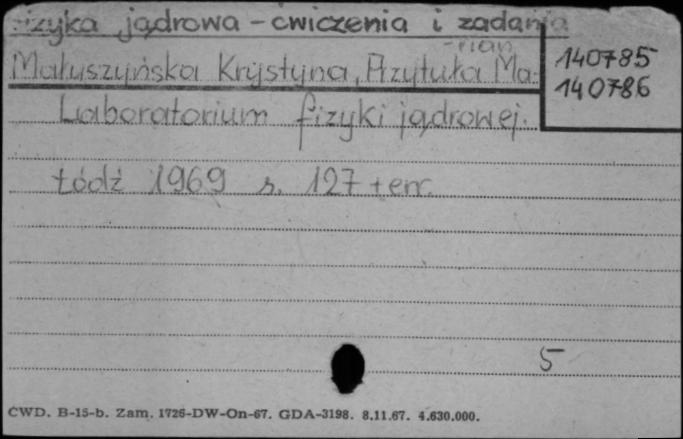 Fizyka jądrowa - ćwiczenia i zadania
Małuszyńska Krystyna, Przytuła Ma-
rian
140785
140786
Laboratorium fizyki jądrowej.
Łódź 1969 s. 127 + err.
5
CWD. B-15-b. Zam. 1726-DW-On-67. GDA-3198. 8.11.67. 4.630.000.